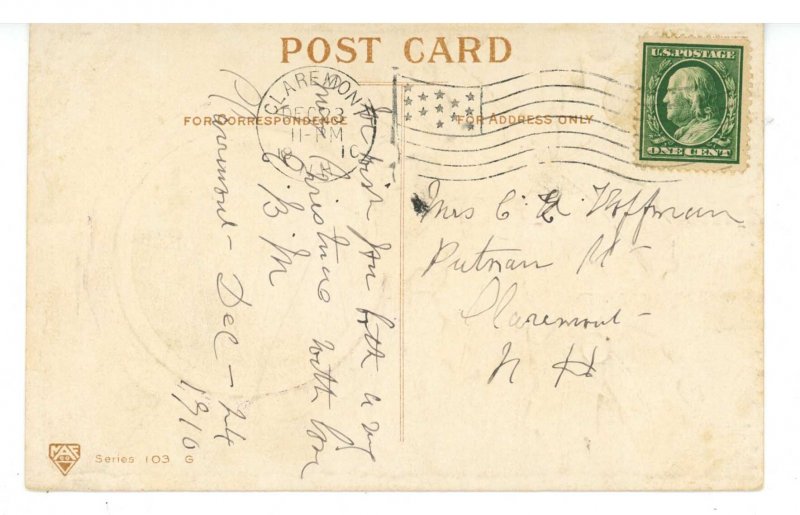 POST CARD
FOR CORRESPONDENCE
FOR ADDRESS ONLY
CLAREMONT
DEC 23
11-PM
1910
U.S. POSTAGE
ONE CENT
I wish you both a my
Christmas with love
C. B. M
Claremont - Dec - 24
1910
Mrs C H Hoffman
Putnam St
Claremont -
N H
Series 103 G